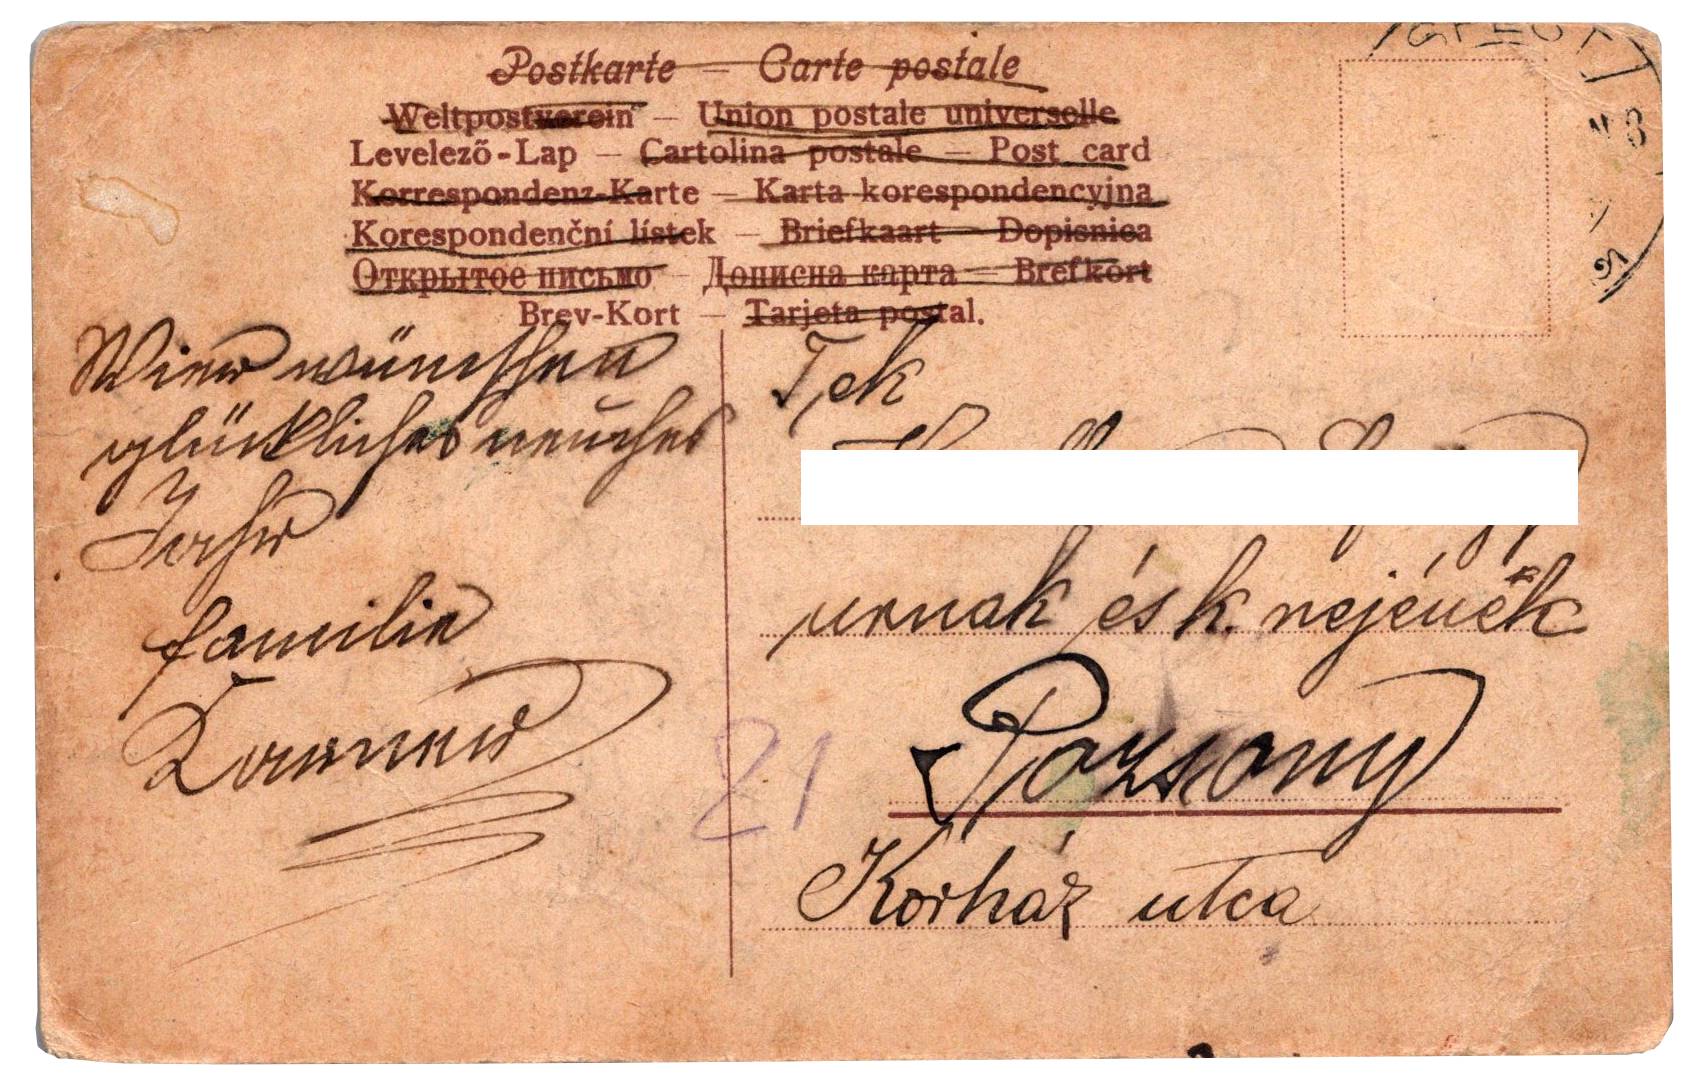 Postkarte — Carte postale
Weltpostverein — Union postale universelle
Levelező-Lap — Cartolina postale — Post card
Korrespondenz-Karte — Karta korespondencyjna
Korespondenční lístek — Briefkaart — Dopisnica
Открытое письмо — Дописна карта — Brefkort
Brev-Kort — Tarjeta postal.
Wier wünschen
glückliches neuhes
Jahr
familie
Tek
urnak és k. nejének
Pozsony
Kórház utca
21